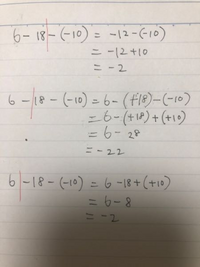 6 - 18 - (-10) = -12 - (-10)
= -12 + 10
= -2
6 - 18 - (-10) = 6 - (+18) - (-10)
= 6 - (+18) + (+10)
= 6 - 28
= -22
6 - 18 - (-10) = 6 - 18 + (+10)
= 6 - 8
= -2